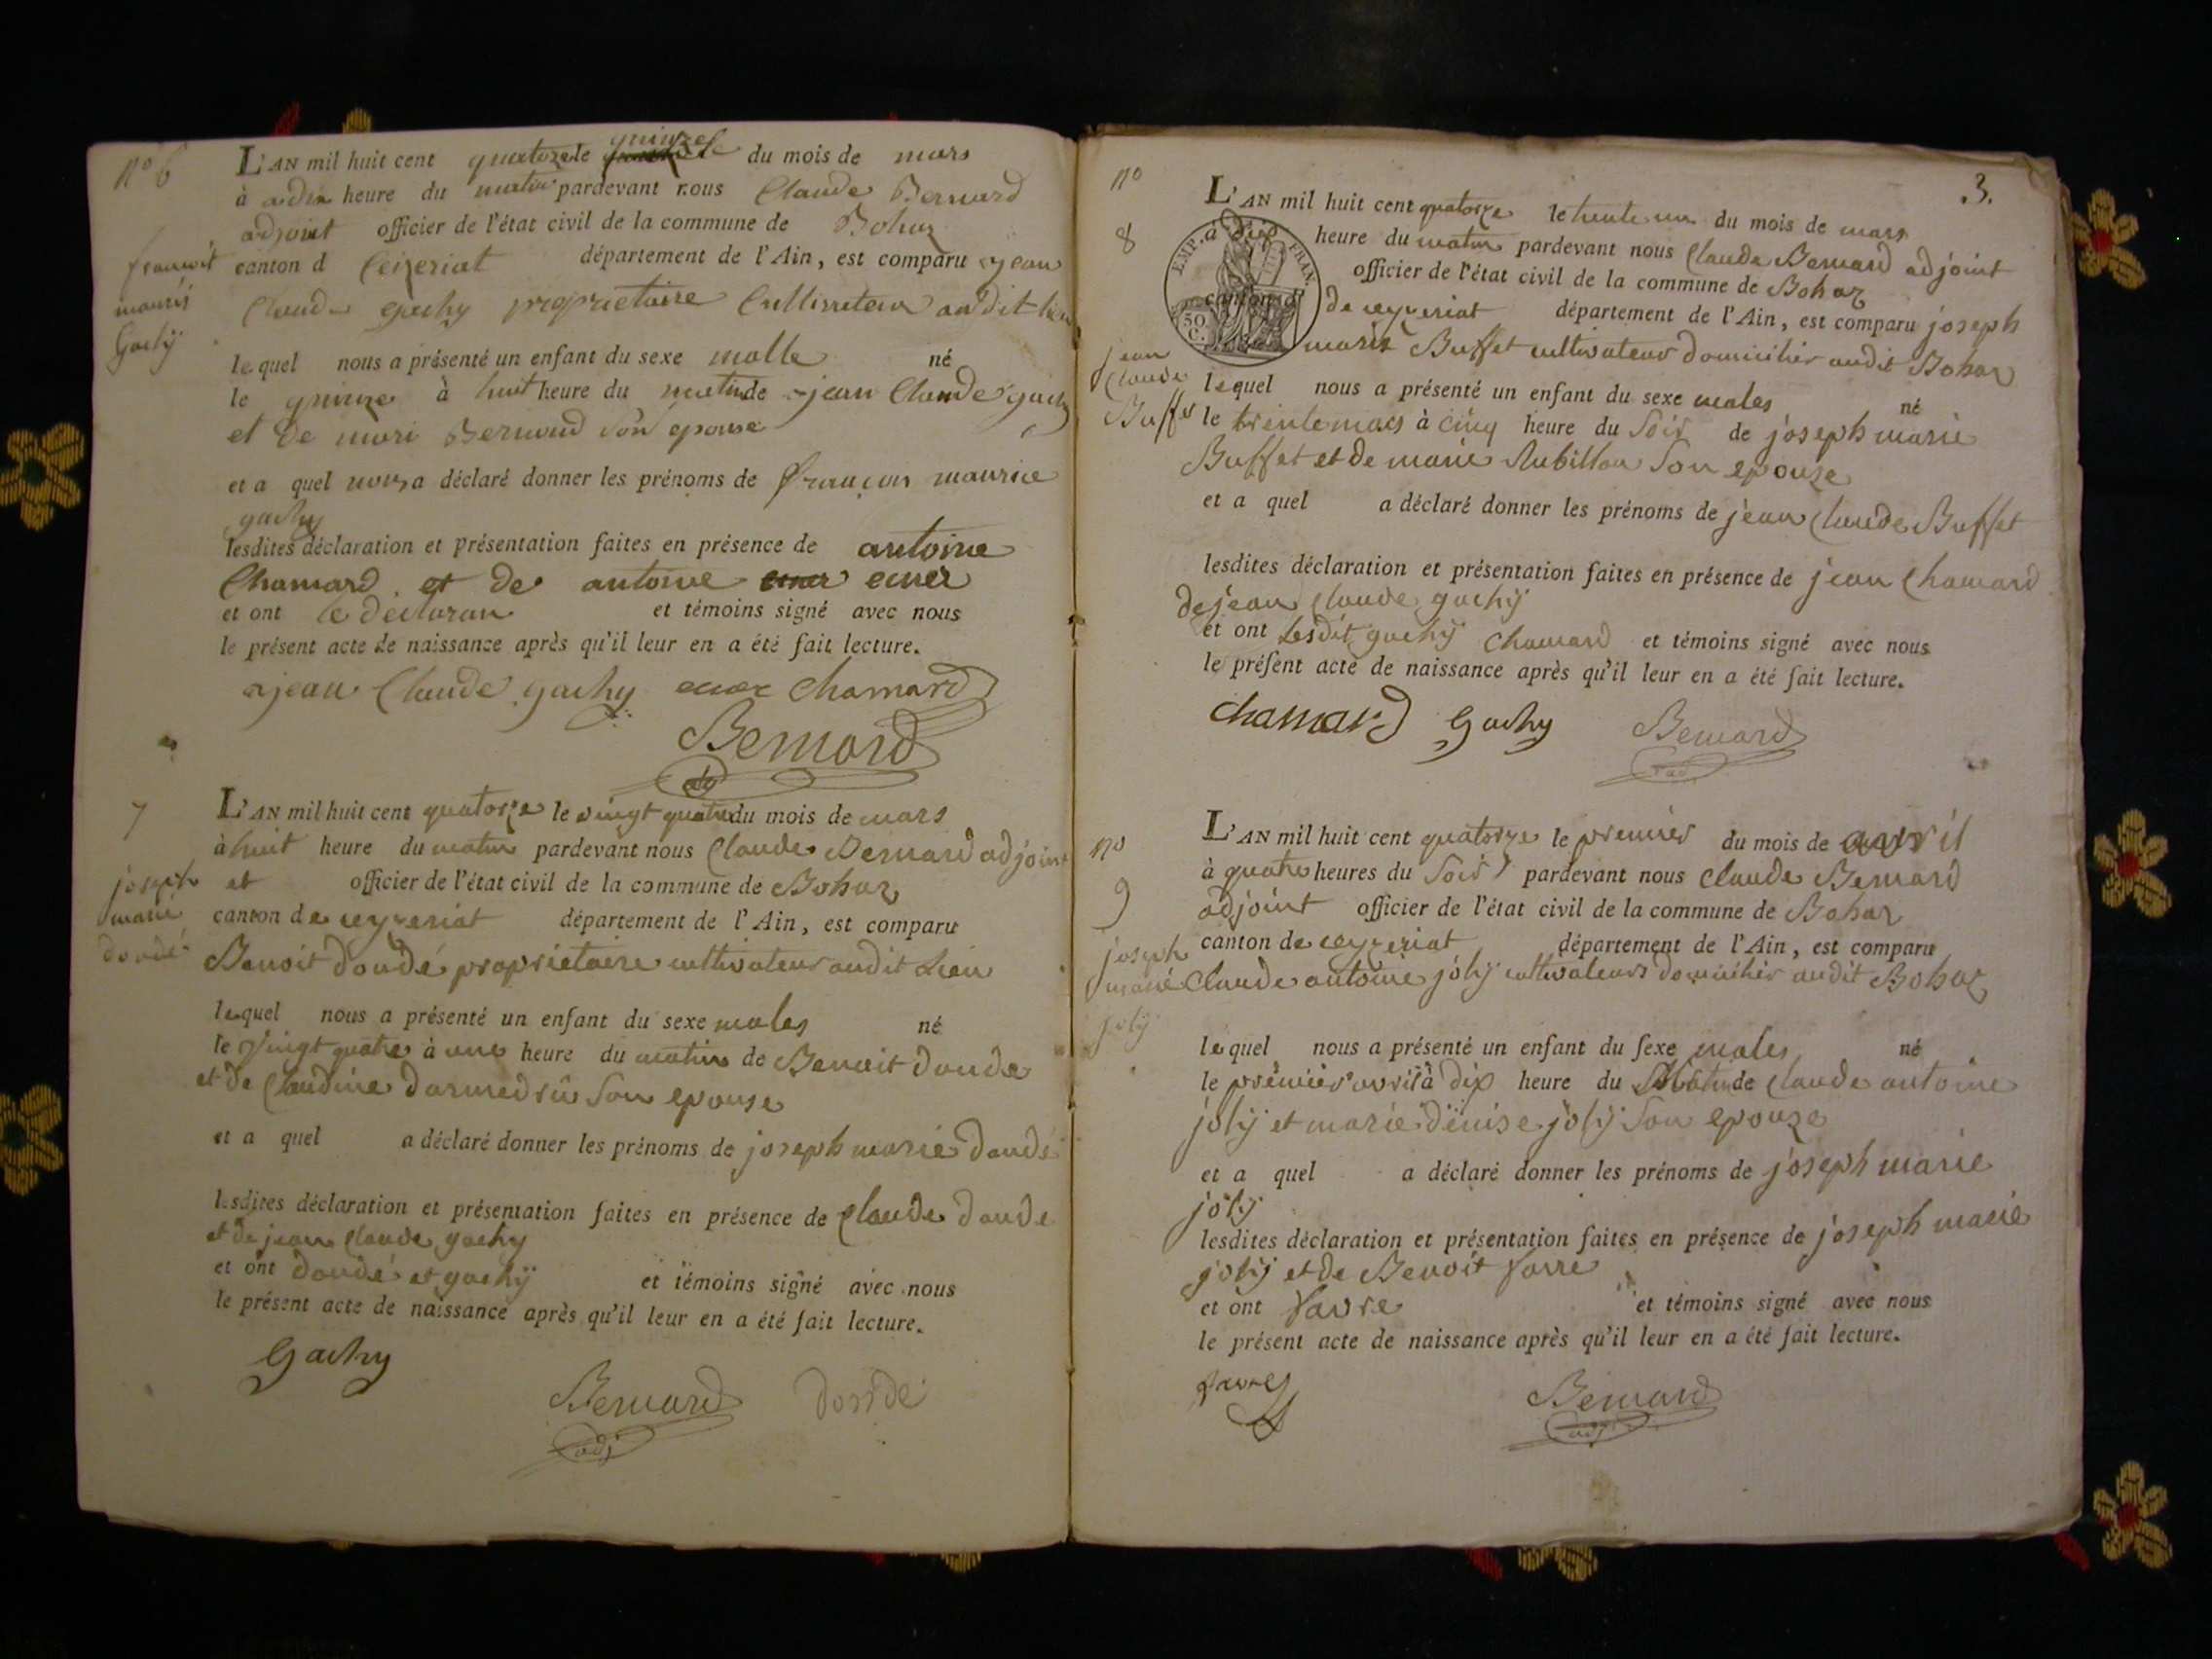 n° 6
L'AN mil huit cent quatorze le quinze du mois de mars
à adix heure du matin pardevant nous Claude Bernard
adjoint officier de l'état civil de la commune de Bohaz
canton d Ceizeriat département de l'Ain, est comparu jean
Claude gachy proprietaire Cultivateur audit lieu
lequel nous a présenté un enfant du sexe malle né
le quinze à huit heure du matin de jean Claude gachy
et de mari Bernard son epouse
et a quel nous a déclaré donner les prénoms de françois maurice
gachy
lesdites déclaration et présentation faites en présence de antoine
Chamard et de antoine
et ont le declaran et témoins signé avec nous
le présent acte de naissance après qu'il leur en a été fait lecture.
jean Claude gachy Chamard
Bernard
mauris
Gachÿ
7
L'AN mil huit cent quatorze le vingt quatre du mois de mars
à huit heure du matin pardevant nous Claude Bernard adjoint
et officier de l'état civil de la commune de Bohaz
canton de ceyzeriat département de l'Ain, est comparu
Benoit doudé proprietaire cultivateur audit Lieu
lequel nous a présenté un enfant du sexe males né
le vingt quatre à une heure du matin de Benoit doude
et de Claudine darmedru Son epouse
et a quel a déclaré donner les prénoms de joseph marie doudé
lesdites déclaration et présentation faites en présence de Claude doude
et de jean Claude gachy
et ont doudé et gachÿ et témoins signé avec nous
le présent acte de naissance après qu'il leur en a été fait lecture.
Gachy
Bernard doude
adj
joseph
marie
doudé
3.
n°
8
L'AN mil huit cent quatorze le trente un du mois de mars
à dix heure du matin pardevant nous Claude Bernard adjoint
officier de l'état civil de la commune de Bohaz
canton d de ceyzeriat département de l'Ain, est comparu joseph
marie Buffet cultivateur domicilier audit Bohaz
lequel nous a présenté un enfant du sexe males né
le trente mars à cinq heure du Soir de joseph marie
Buffet et de marie Rubillon Son epouze
et a quel a déclaré donner les prénoms de jean Claude Buffet
lesdites déclaration et présentation faites en présence de jean Chamard
de jean Claude gachÿ
et ont Lesdit gachÿ Chamard et témoins signé avec nous
le préſent acte de naissance après qu'il leur en a été fait lecture.
Chamard Gachy Bernard
adj
EMP. FRAN.
50
C.
jean
Claude
Buffet
n°
9
L'AN mil huit cent quatorze le premier du mois de avril
à quatre heures du Soir pardevant nous Claude Bernard
adjoint officier de l'état civil de la commune de Bohaz
canton de ceyzeriat département de l'Ain, est comparu
Claude antoine jolÿ cultivateurs domicilier audit Bohaz
lequel nous a présenté un enfant du ſexe males né
le premier avril à dix heure du Matin de Claude antoine
jolÿ et marie denise jolÿ Son epouze
et a quel a déclaré donner les prénoms de joseph marie
jolÿ
lesdites déclaration et présentation faites en présence de joseph marie
jolÿ et de Benoit favre
et ont favre et témoins signé avec nous
le présent acte de naissance après qu'il leur en a été fait lecture.
favre Bernard
adj
joseph
marie
jolÿ